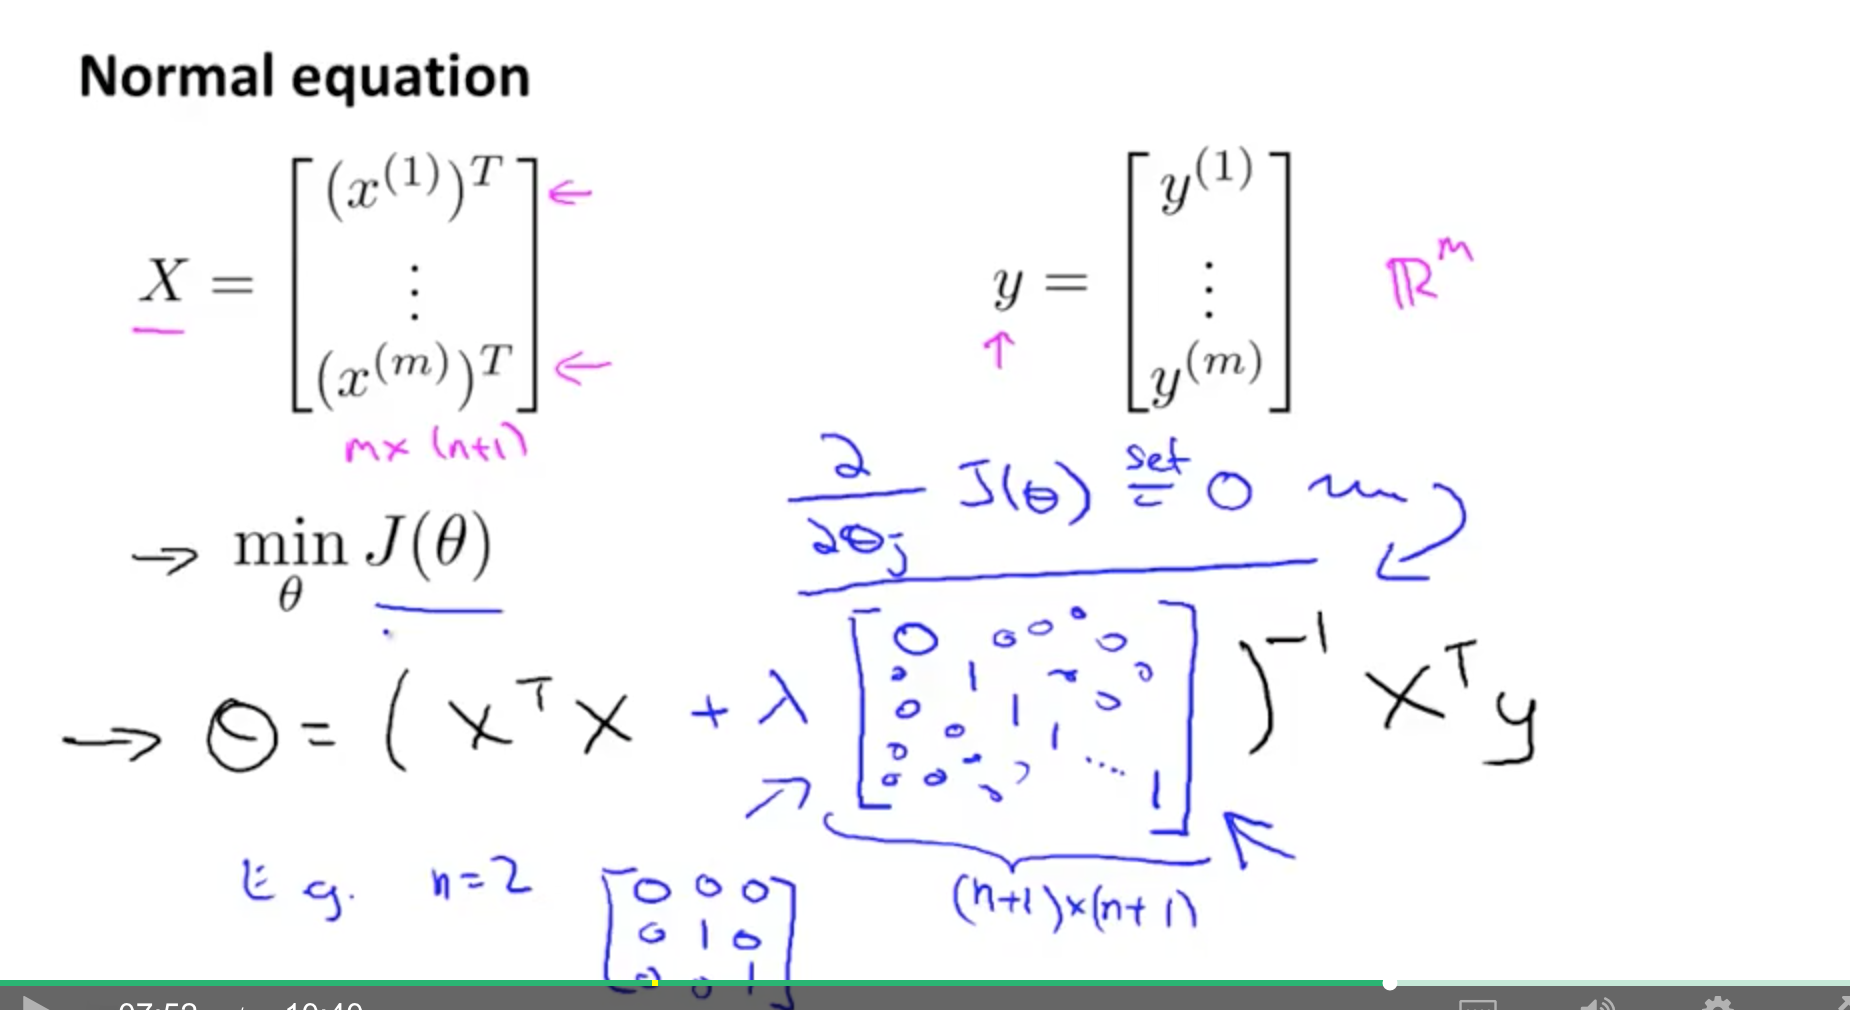 Normal equation
X = [ (x^(1))^T ⋮ (x^(m))^T ] ←  ←
m×(n+1)
y = [ y^(1) ⋮ y^(m) ] ℝ^m
↑
∂/∂θj J(θ) set = 0
→ min_θ J(θ)
→ θ = ( X^T X + λ [ 0 0 0 0 0 1 0 1 0 0 1 .... 1 ] )^-1 X^T y
(n+1)×(n+1)
E.g. n=2 [ 0 0 0
0 1 0
0 0 1 ]